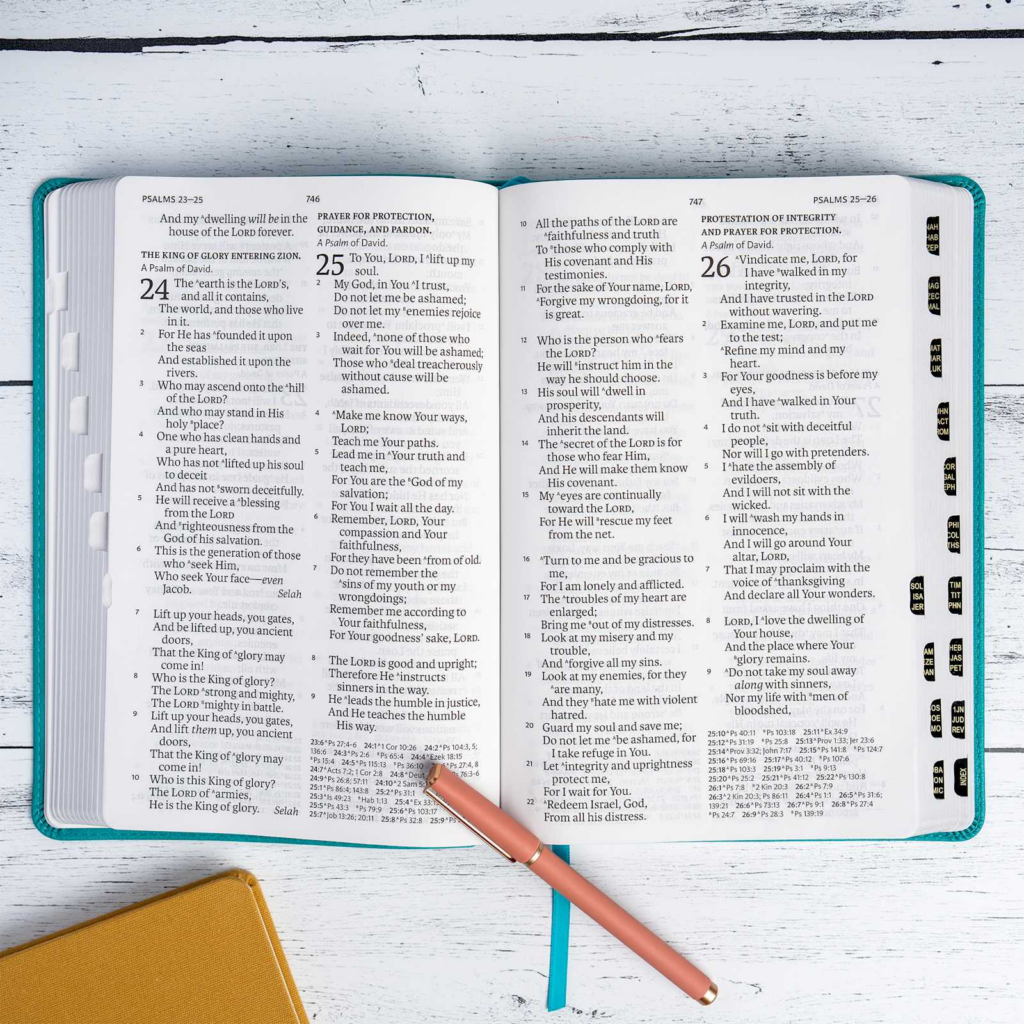 PSALMS 23—25
746
And my ᴬdwelling will be in the
house of the LORD forever.
THE KING OF GLORY ENTERING ZION.
A Psalm of David.
24 The ᴬearth is the LORD's,
and all it contains,
The world, and those who live
in it.
2 For He has ᴬfounded it upon
the seas
And established it upon the
rivers.
3 Who may ascend onto the ᴬhill
of the LORD?
And who may stand in His
holy ᴮplace?
4 One who has clean hands and
a pure heart,
Who has not ᴬlifted up his soul
to deceit
And has not ᴮsworn deceitfully.
5 He will receive a ᴬblessing
from the LORD
And ᴮrighteousness from the
God of his salvation.
6 This is the generation of those
who ᴬseek Him,
Who seek Your face—even
Jacob. Selah
7 Lift up your heads, you gates,
And be lifted up, you ancient
doors,
That the King of ᴬglory may
come in!
8 Who is the King of glory?
The LORD ᴬstrong and mighty,
The LORD ᴮmighty in battle.
9 Lift up your heads, you gates,
And lift them up, you ancient
doors,
That the King of ᴬglory may
come in!
10 Who is this King of glory?
The LORD of ᴬarmies,
He is the King of glory. Selah
PRAYER FOR PROTECTION,
GUIDANCE, AND PARDON.
A Psalm of David.
25 To You, LORD, I ᴬlift up my
soul.
2 My God, in You ᴬI trust,
Do not let me be ashamed;
Do not let my ᴮenemies rejoice
over me.
3 Indeed, ᴬnone of those who
wait for You will be ashamed;
Those who ᴮdeal treacherously
without cause will be
ashamed.
4 ᴬMake me know Your ways,
LORD;
Teach me Your paths.
5 Lead me in ᴬYour truth and
teach me,
For You are the ᴮGod of my
salvation;
For You I wait all the day.
6 Remember, LORD, Your
compassion and Your
faithfulness,
For they have been ᴬfrom of old.
7 Do not remember the
ᴬsins of my youth or my
wrongdoings;
Remember me according to
Your faithfulness,
For Your goodness' sake, LORD.
8 The LORD is good and upright;
Therefore He ᴬinstructs
sinners in the way.
9 He ᴬleads the humble in justice,
And He teaches the humble
His way.
23:6 ᴬPs 27:4-6 24:1 ᴬ1 Cor 10:26 24:2 ᴬPs 104:3, 5;
136:6 24:3 ᴬPs 2:6 ᴮPs 65:4 24:4 ᴬEzek 18:15
ᴮPs 15:4 24:5 ᴬPs 115:13 ᴮPs 36:10 Ps 27:4, 8
24:7 ᴬActs 7:2; 1 Cor 2:8 24:8 ᴬDeut Ps 76:3-6
24:9 ᴬPs 26:8; 57:11 24:10 ᴬ2 Sam 5
25:1 ᴬPs 86:4; 143:8 25:2 ᴬPs 31:1
25:3 ᴬIs 49:23 ᴮHab 1:13 25:4 ᴬEx 33:1
25:5 ᴬPs 43:3 ᴮPs 79:9 25:6 ᴬPs 103:17
25:7 ᴬJob 13:26; 20:11 25:8 ᴬPs 32:8 25:9 ᴬPs
747
PSALMS 25—26
10 All the paths of the LORD are
ᴬfaithfulness and truth
To ᴮthose who comply with
His covenant and His
testimonies.
11 For the sake of Your name, LORD,
ᴬForgive my wrongdoing, for it
is great.
12 Who is the person who ᴬfears
the LORD?
He will ᴮinstruct him in the
way he should choose.
13 His soul will ᴬdwell in
prosperity,
And his descendants will
inherit the land.
14 The ᴬsecret of the LORD is for
those who fear Him,
And He will make them know
His covenant.
15 My ᴬeyes are continually
toward the LORD,
For He will ᴮrescue my feet
from the net.
16 ᴬTurn to me and be gracious to
me,
For I am lonely and afflicted.
17 The ᴬtroubles of my heart are
enlarged;
Bring me ᴮout of my distresses.
18 Look at my misery and my
trouble,
And ᴬforgive all my sins.
19 Look at my enemies, for they
ᴬare many,
And they ᴮhate me with violent
hatred.
20 Guard my soul and save me;
Do not let me ᴬbe ashamed, for
I take refuge in You.
21 Let ᴬintegrity and uprightness
protect me,
For I wait for You.
22 ᴬRedeem Israel, God,
From all his distress.
PROTESTATION OF INTEGRITY
AND PRAYER FOR PROTECTION.
A Psalm of David.
26 ᴬVindicate me, LORD, for
I have ᴮwalked in my
integrity,
And I have trusted in the LORD
without wavering.
2 Examine me, LORD, and put me
to the test;
ᴬRefine my mind and my
heart.
3 For Your goodness is before my
eyes,
And I have ᴬwalked in Your
truth.
4 I do not ᴬsit with deceitful
people,
Nor will I go with pretenders.
5 I ᴬhate the assembly of
evildoers,
And I will not sit with the
wicked.
6 I will ᴬwash my hands in
innocence,
And I will go around Your
altar, LORD,
7 That I may proclaim with the
voice of ᴬthanksgiving
And declare all Your wonders.
8 LORD, I ᴬlove the dwelling of
Your house,
And the place where Your
ᴮglory remains.
9 ᴬDo not take my soul away
along with sinners,
Nor my life with ᴮmen of
bloodshed,
25:10 ᴬPs 40:11 ᴮPs 103:18 25:11 ᴬEx 34:9
25:12 ᴬPs 31:19 ᴮPs 25:8 25:13 ᴬProv 1:33; Jer 23:6
25:14 ᴬProv 3:32; John 7:17 25:15 ᴬPs 141:8 ᴮPs 124:7
25:16 ᴬPs 69:16 25:17 ᴬPs 40:12 ᴮPs 107:6
25:18 ᴬPs 103:3 25:19 ᴬPs 3:1 ᴮPs 9:13
25:20 ᴬPs 25:2 25:21 ᴬPs 41:12 25:22 ᴬPs 130:8
26:1 ᴬPs 7:8 ᴮ2 Kin 20:3 26:2 ᴬPs 7:9
26:3 ᴬ2 Kin 20:3; Ps 86:11 26:4 ᴬPs 1:1 26:5 ᴬPs 31:6;
139:21 26:6 ᴬPs 73:13 26:7 ᴬPs 9:1 26:8 ᴬPs 27:4
ᴮPs 24:7 26:9 ᴬPs 28:3 ᴮPs 139:19
AH
HAB
ZEP
AG
ZEC
AL
AT
AR
UK
HN
ACT
ROM
COR
GAL
EPH
PHI
COL
THS
SOL
ISA
JER
TIM
TIT
PHN
AM
ZE
AN
HEB
JAS
PET
OS
OE
MO
1JN
JUD
REV
BA
ON
MIC
INDEX